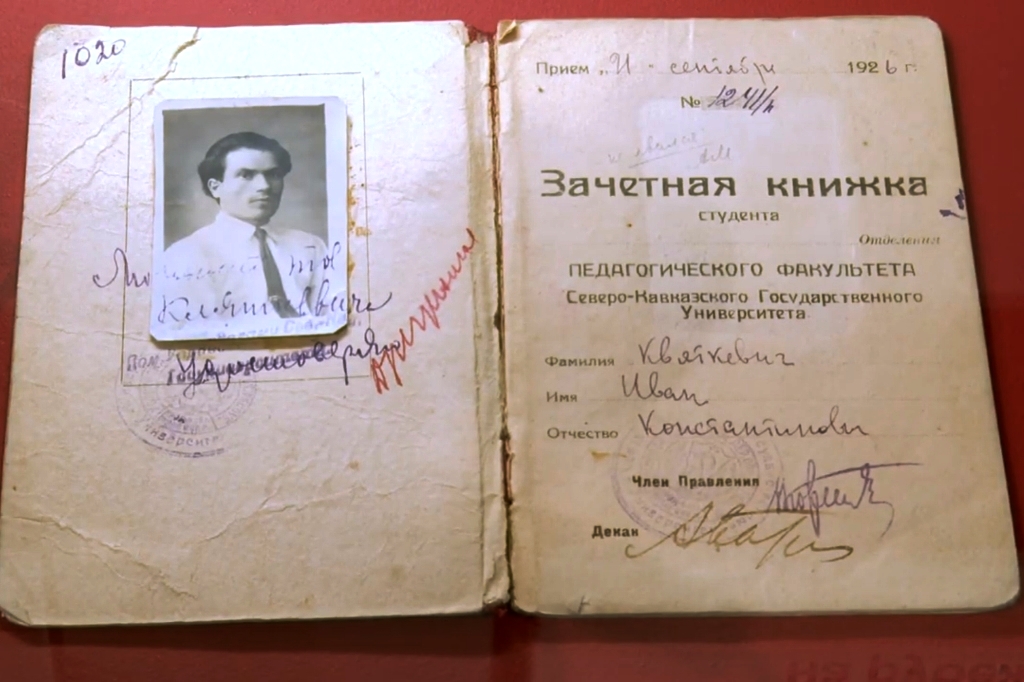 1020
тов
Квяткевича
Удостоверяю
Университе
Прием „21" сентября 1926 г.
№
Зачетная книжка
студента
Отделения
ПЕДАГОГИЧЕСКОГО ФАКУЛЬТЕТА
Северо-Кавказского Государственного
Университета
Фамилия Квяткевич
Имя Иван
Отчество Константинович
Член Правления
Декан